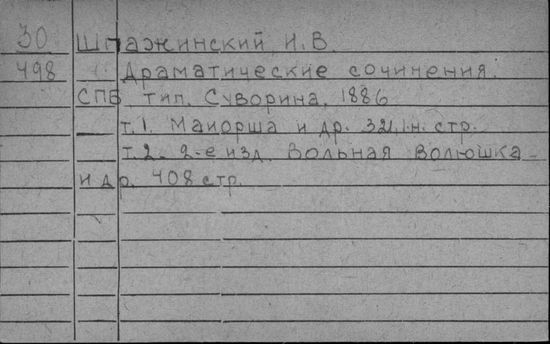 30 Шпажинский И.В.
498 Драматические сочинения.
СПБ тип. Суворина, 1886
т.1. Майорша и др. 321, 1 н. стр.
т.2. 2-е изд. Вольная волюшка
и др. 408 стр.